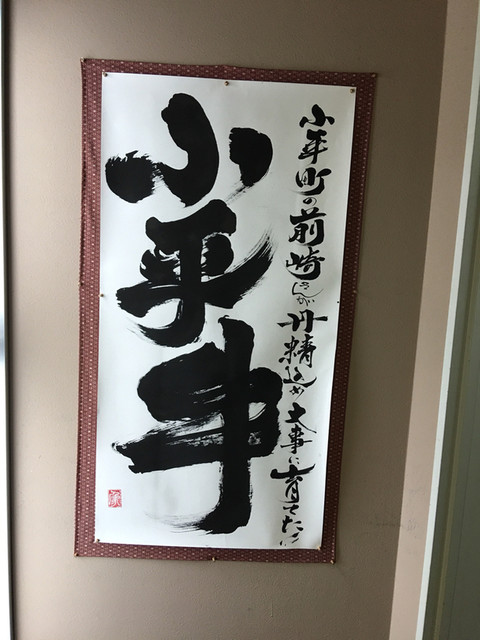 小平町の前崎さんが丹精込め大事に育てた!!
小平牛